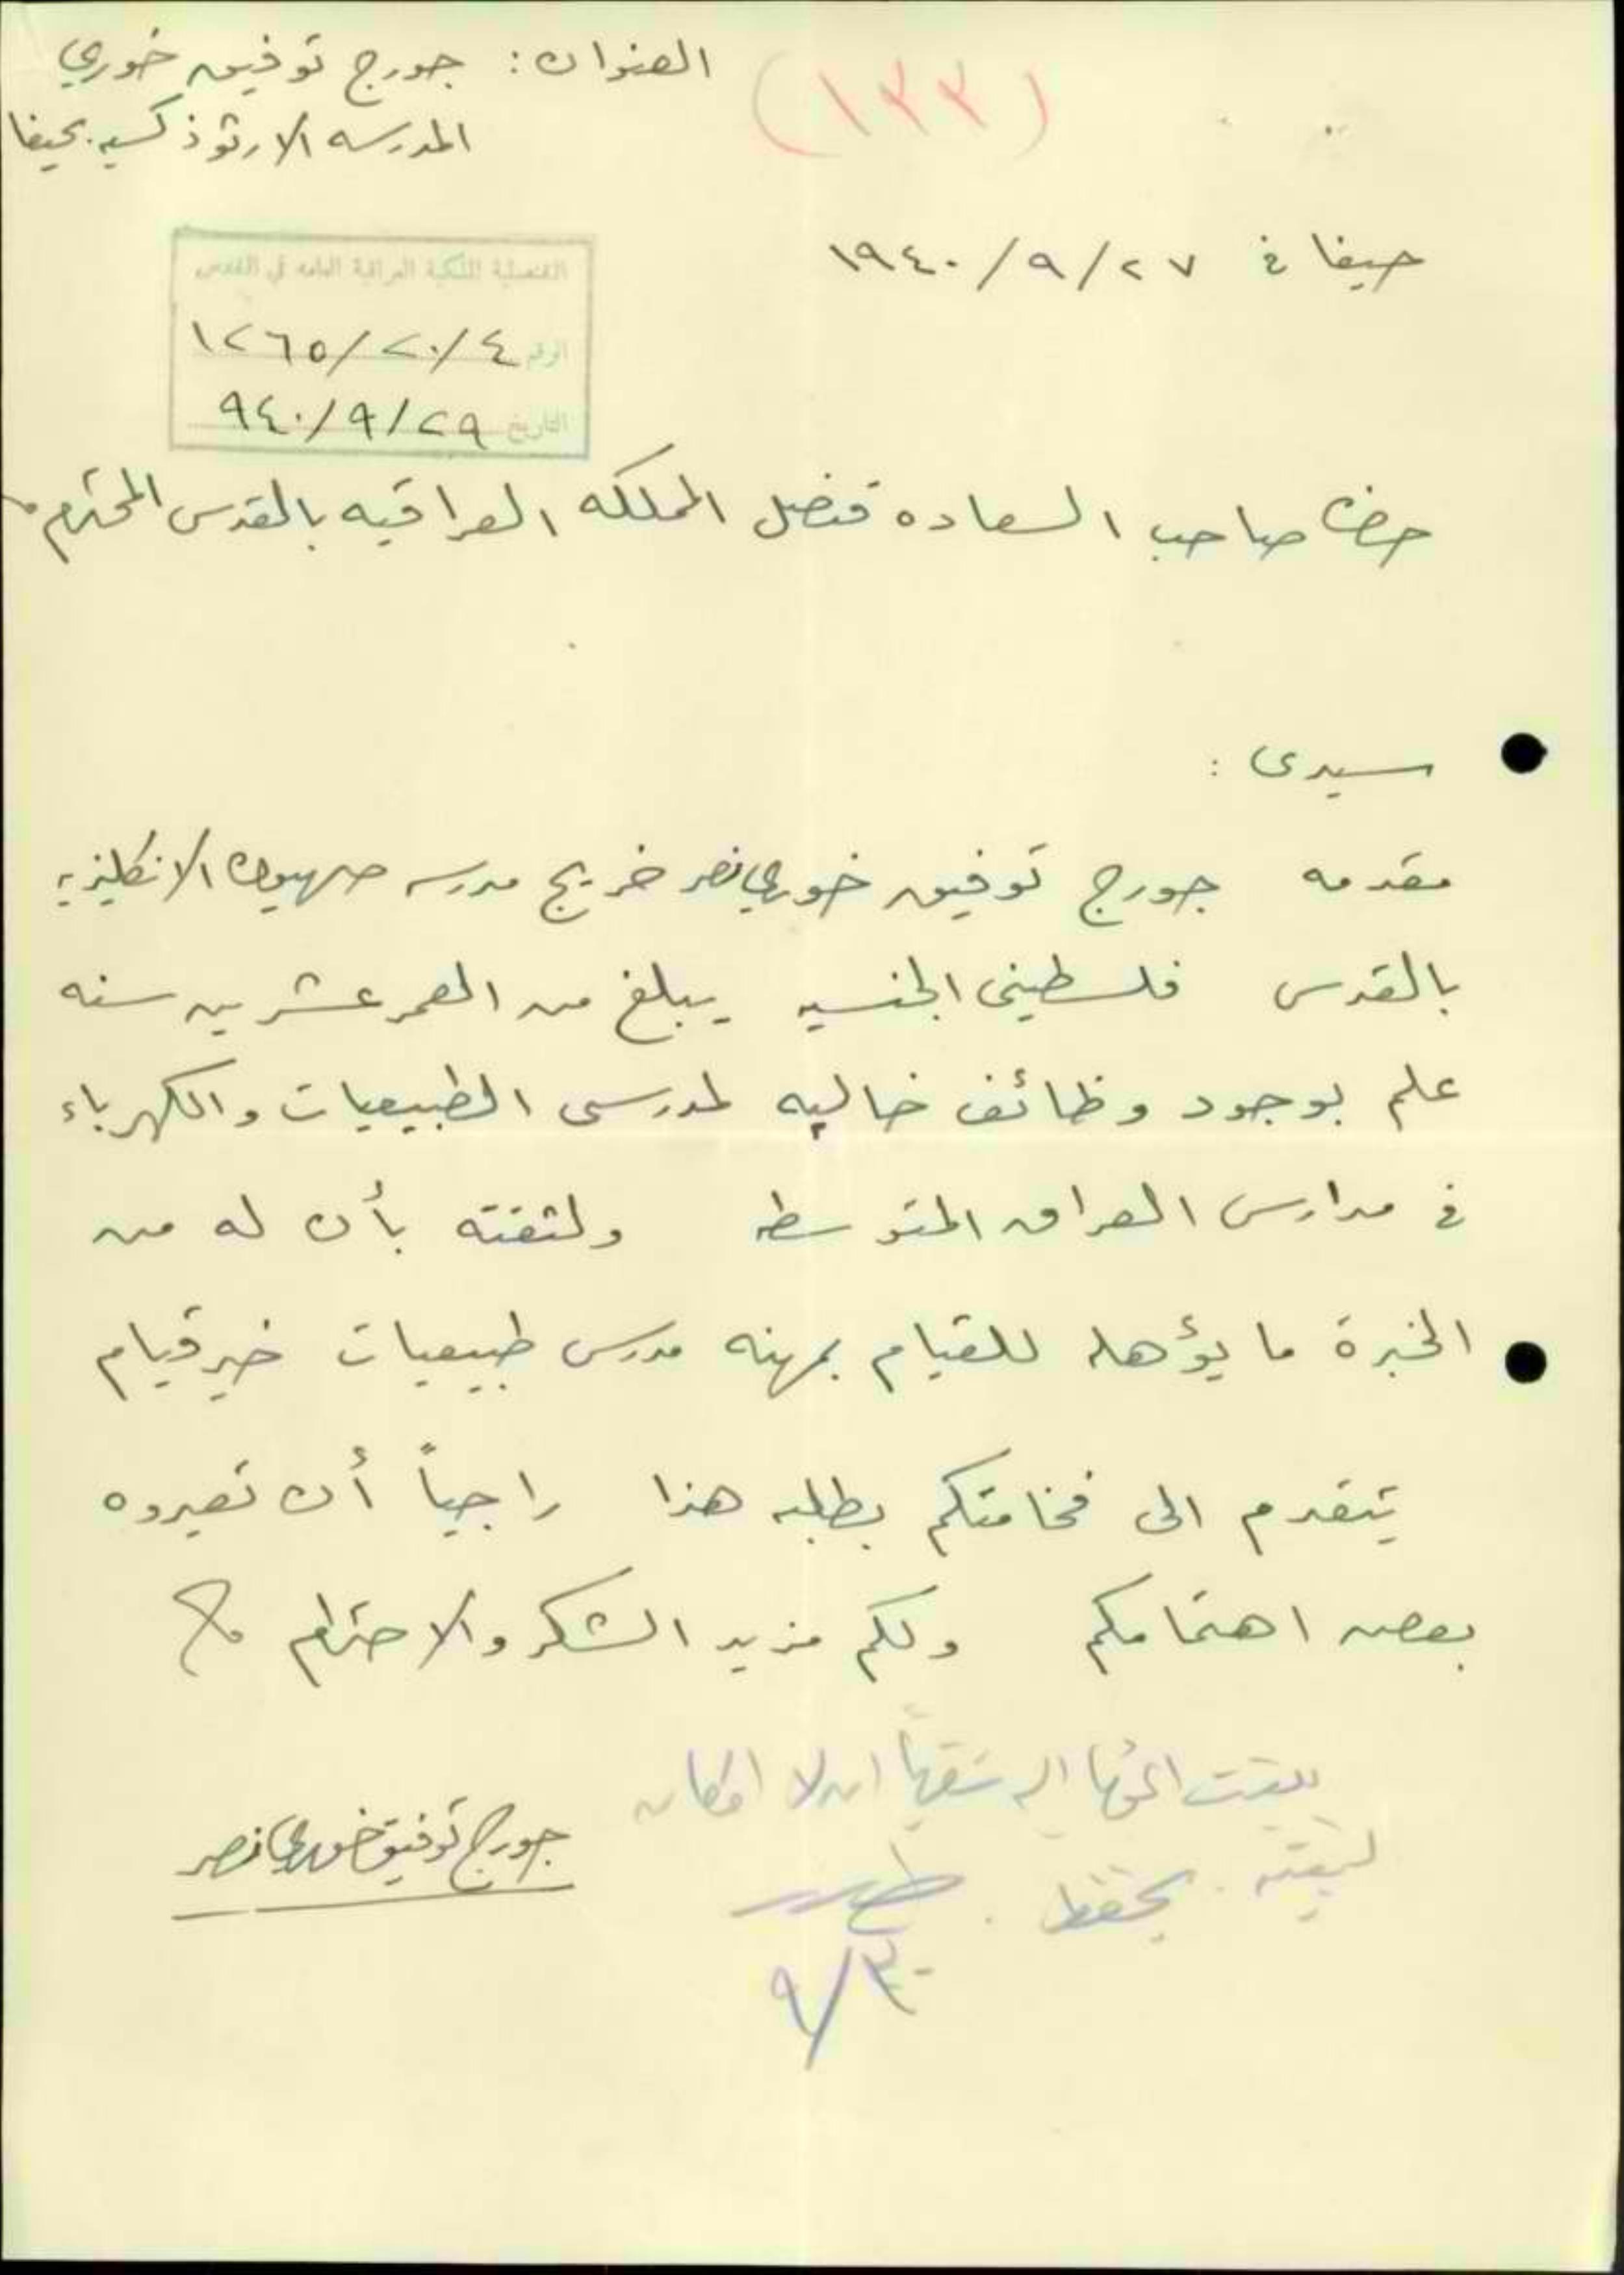 العنوان: جورج توفيق خوري
(١٣٣)
المدرسه الارثوذكسيه بحيفا
حيفا في ٢٧/٩/١٩٤٠
القنصلية الملكية العراقية العامه في القدس
الرقم ٤/٢٠/١٢٦٥
التاريخ ٢٩/٩/٩٤٠
حضرة صاحب السعاده قنصل المملكه العراقيه بالقدس المحترم
سيدى :
مقدمه جورج توفيق خوري نصر خريج مدرسه صهيون الانكليزيه
بالقدس فلسطينى الجنسيه يبلغ من العمر عشرين سنه
علم بوجود وظائف خاليه لمدرسى الطبيعيات والكهرباء
في مدارس العراق المتوسطه ولثقته بأن له من
الخبرة ما يؤهله للقيام بمهنه مدرس طبيعيات خير قيام
يتقدم الى فخامتكم بطلبه هذا راجياً أن تعيروه
بعض اهتمامكم ولكم مزيد الشكر والاحترام
شفهياً ان لا امكان
جورج توفيق خوري نصر
يحفظ
٣٠/٩